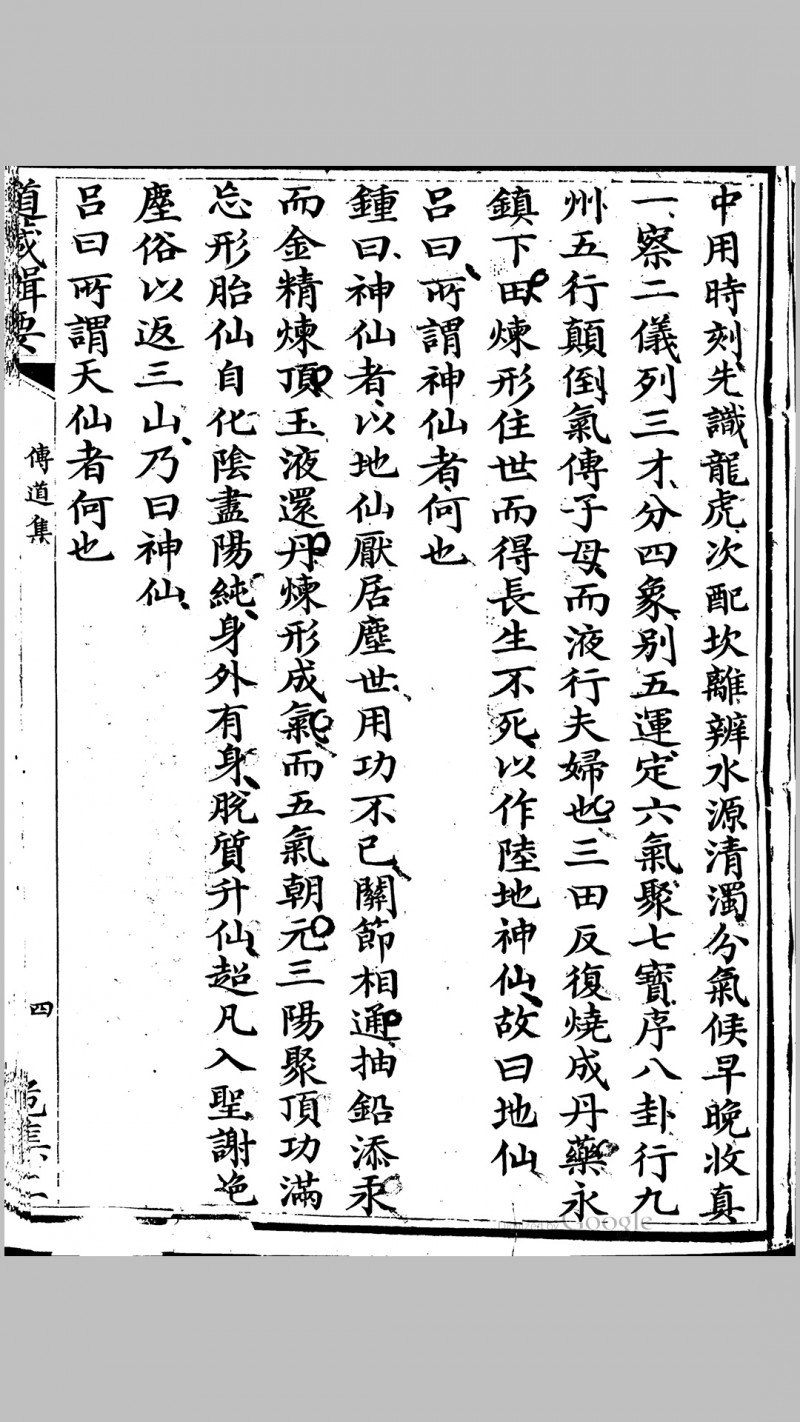 中用時刻先識龍虎次配坎離辨水源清濁分氣候早晚收真
一察二儀列三才分四象别五運定六氣聚七寶序八卦行九
州五行顛倒氣傳子母而液行夫婦也三田反復燒成丹藥永
鎮下田煉形住世而得長生不死以作陸地神仙故曰地仙
呂曰所謂神仙者何也
鍾曰神仙者以地仙厭居塵世用功不已關節相通抽鉛添汞
而金精煉頂玉液還丹煉形成氣而五氣朝元三陽聚頂功滿
忘形胎仙自化陰盡陽純身外有身脫質升仙超凡入聖謝絶
塵俗以返三山乃曰神仙
呂曰所謂天仙者何也
道藏輯要
傳道集
四
危集二
Google